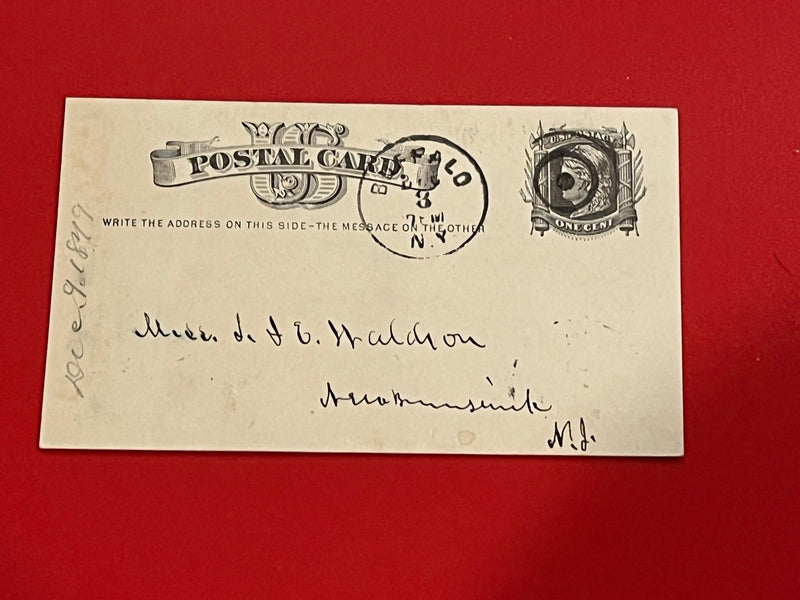 US
POSTAL CARD.
WRITE THE ADDRESS ON THIS SIDE-THE MESSAGE ON THE OTHER
BUFFALO
8
N.Y.
U.S. POSTAGE
ONE CENT
Dec 9. 1879
J. & E. Waldron
New Brunswick
N.J.